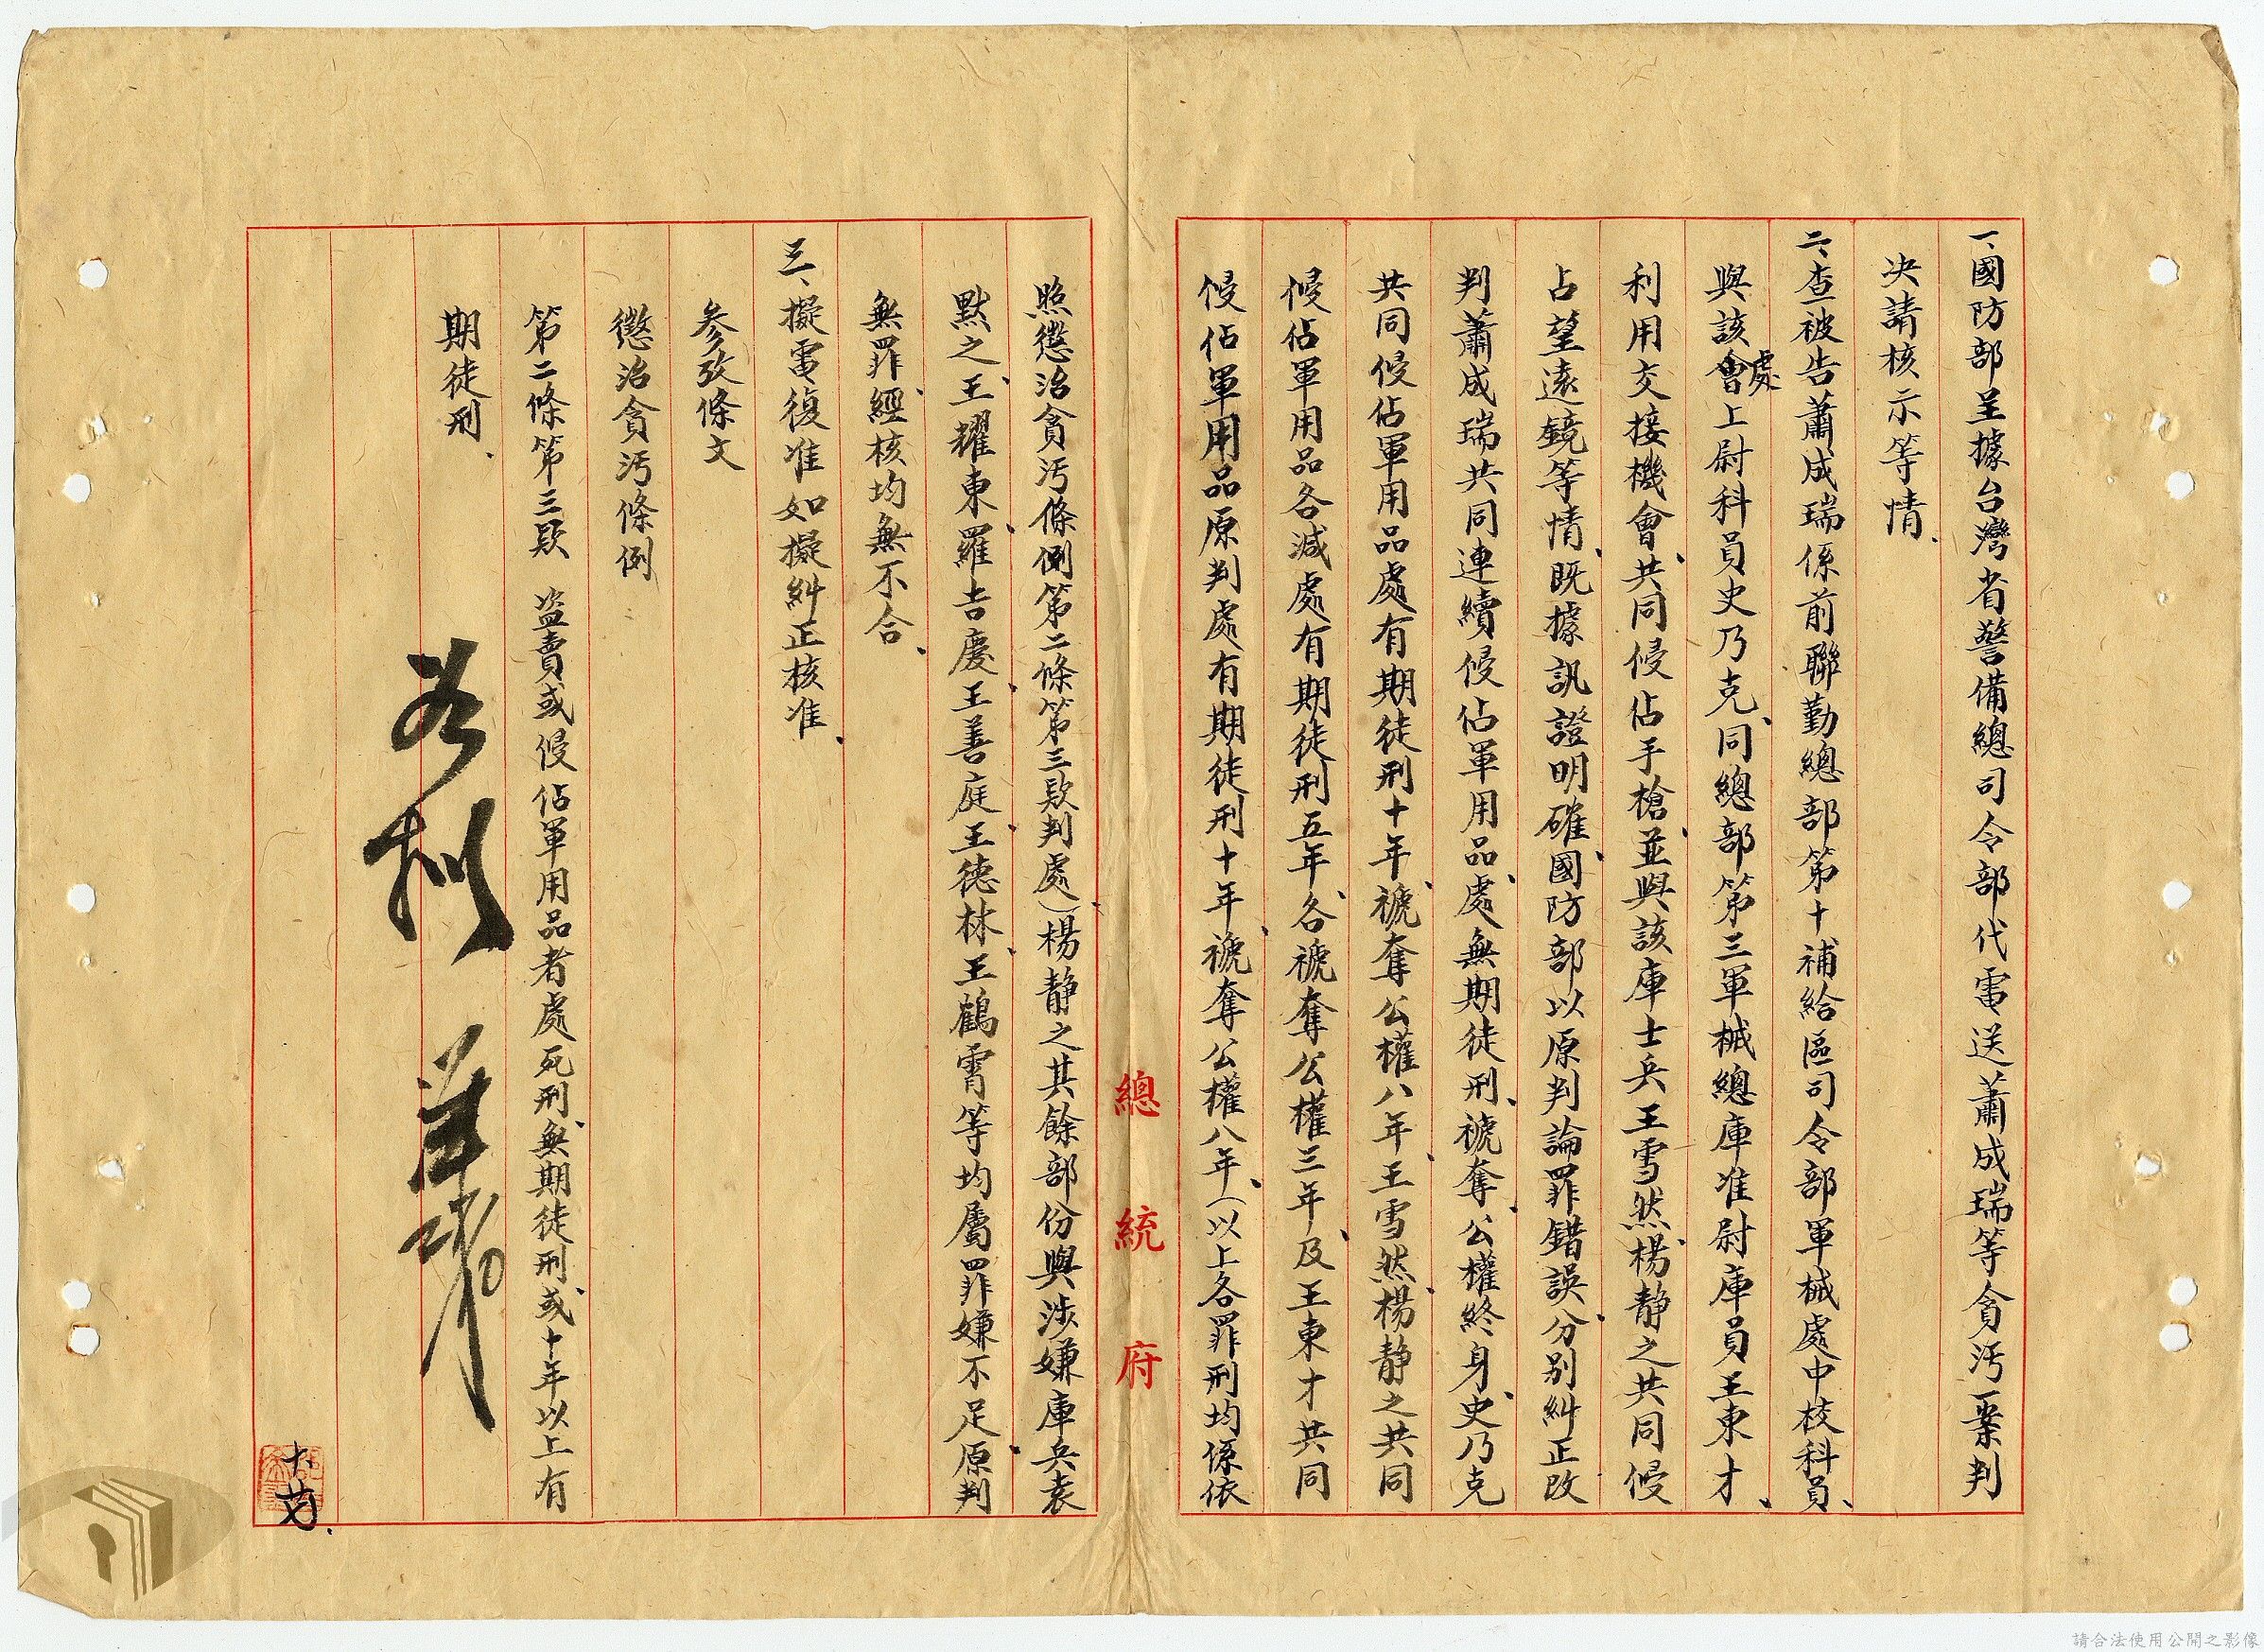 一、國防部呈據台灣省警備總司令部代電送蕭成瑞等貪污一案判
決請核示等情、
二、查被告蕭成瑞係前聯勤總部第十補給區司令部軍械處中校科員、
與該會處上尉科員史乃克、同總部第三軍械總庫准尉庫員王東才、
利用交接機會、共同侵佔手槍、並與該庫士兵王雪然、楊靜之共同侵
占望遠鏡等情、既據訊證明確、國防部以原判論罪錯誤、分別糾正改
判蕭成瑞共同連續侵佔軍用品、處無期徒刑、褫奪公權終身、史乃克
共同侵佔軍用品處有期徒刑十年、褫奪公權八年、王雪然、楊靜之共同
侵佔軍用品各減處有期徒刑五年、各褫奪公權三年、及王東才共同
侵佔軍用品原判處有期徒刑十年、褫奪公權八年、(以上各罪刑均係依
總統府
照懲治貪污條例第二條第三款判處)、楊靜之其餘部份與涉嫌庫兵袁
默之、王耀東、羅吉慶、王善庭、王德林、王鶴霄等均屬罪嫌不足、原判
無罪、經核均無不合、
三、擬電復准如擬糾正核准、
參攷條文
懲治貪污條例
第二條第三款 盜賣或侵佔軍用品者處死刑、無期徒刑、或十年以上有
期徒刑、
請合法使用公開之影像